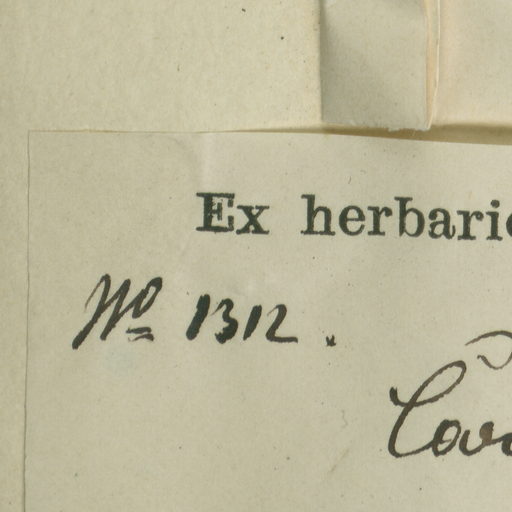 Ex herbari
No 1312.